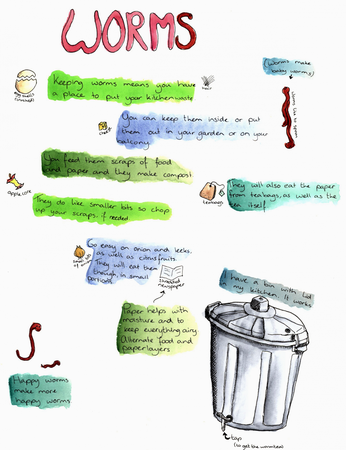 WORMS
Keeping worms means you have
a place to put your kitchen waste
egg shells
(crushed)
hair
(Worms make
baby worms)
You can keep them inside or put
them out in your garden or on your
balcony.
You feed them scraps of food
and paper and they make compost
apple core
They do like smaller bits so chop
up your scraps if needed
teabags
They will also eat the paper
from teabags, as well as the
tea itself
Go easy on onion and leeks,
as well as citrus fruits.
They will eat them
though, in small
portions
shredded
newspaper
I have a bin with lid
in my kitchen. It works
Paper helps with
moisture and to
keep everything airy.
Alternate food and
paper layers
Happy worms
make more
happy worms
tap
(to get the worm tea)